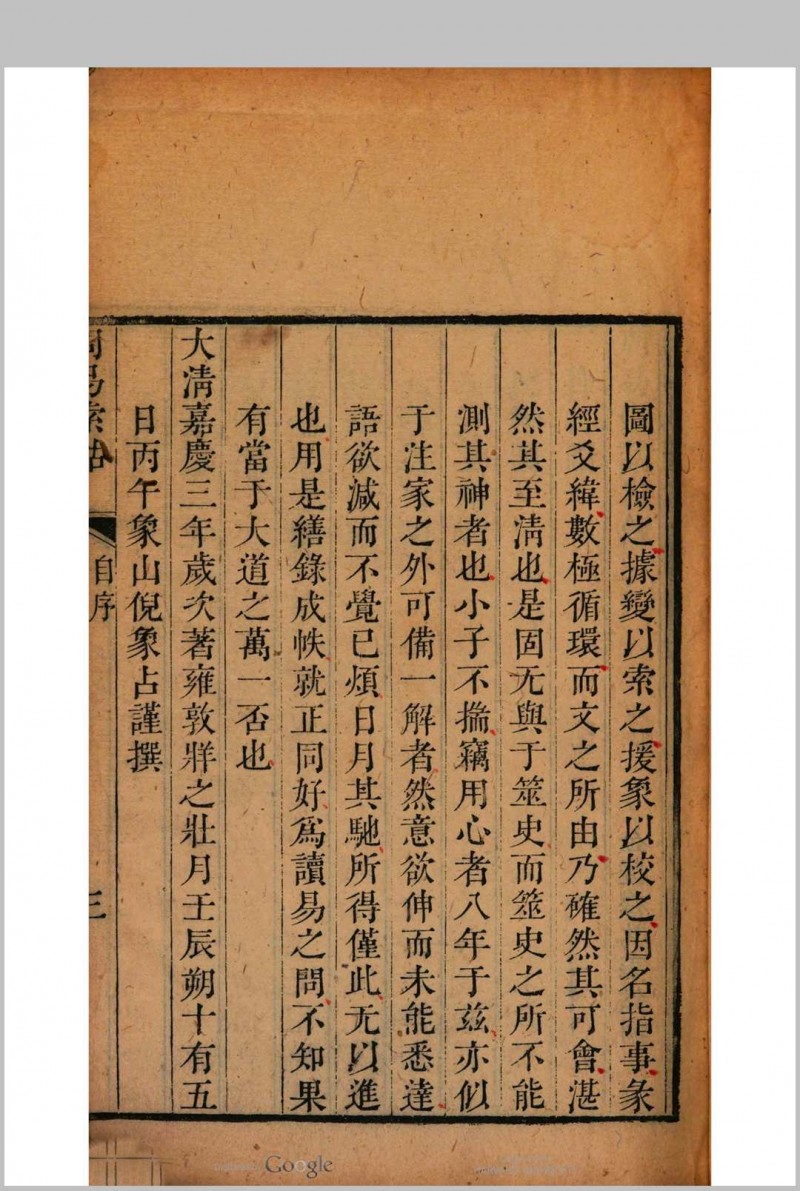 圖以檢之據變以索之援象以校之因名指事彖
經爻緯數極循環而文之所由乃確然其可會湛
然其至淸也是固无與于筮史而筮史之所不能
測其神者也小子不揣竊用心者八年于茲亦似
于注家之外可備一解者然意欲伸而未能悉達
語欲減而不覺已煩日月其馳所得僅此无以進
也用是繕錄成帙就正同好爲讀易之問不知果
有當于大道之萬一否也
大淸嘉慶三年歲次著雍敦牂之壯月壬辰朔十有五
日丙午象山倪象占謹撰
周易索詁
自序
三
Google